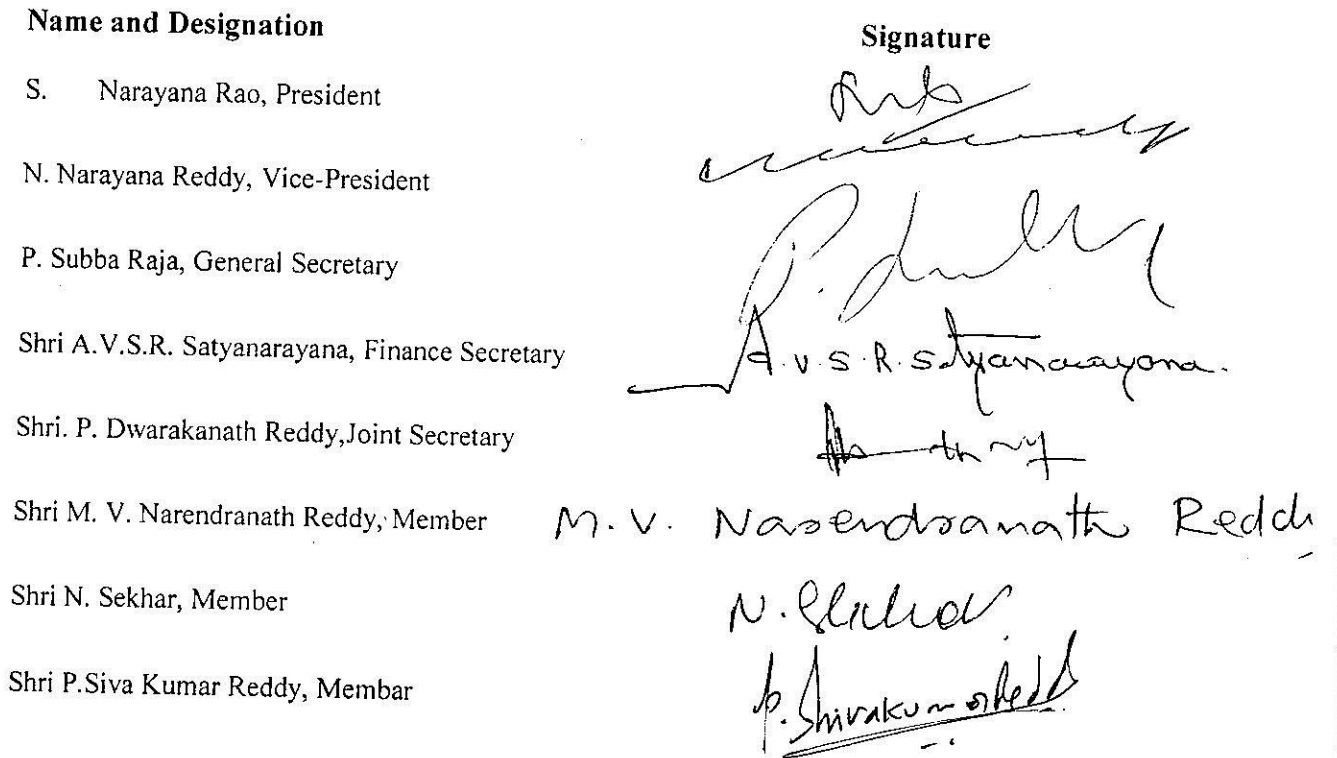 Name and Designation
Signature
S. Narayana Rao, President
N. Narayana Reddy, Vice-President
P. Subba Raja, General Secretary
P.
Shri A.V.S.R. Satyanarayana, Finance Secretary
A.V.S.R. Satyanarayana.
Shri. P. Dwarakanath Reddy,Joint Secretary
Shri M. V. Narendranath Reddy, Member
M.V. Narendranath Redd
Shri N. Sekhar, Member
N. Shekar
Shri P.Siva Kumar Reddy, Membar
P. Shivakumar Redd